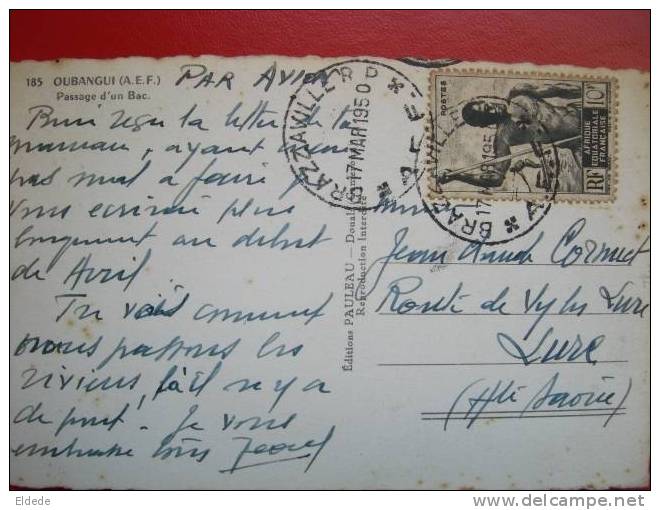 185 OUBANGUI (A.E.F.)
Passage d'un Bac.
PAR AVION
BRAZZAVILLE R.P. * A.E.F. *
17 MAR 1950
POSTES
10F
AFRIQUE
EQUATORIALE
FRANÇAISE
RF
BRAZZAVILLE R.P. * A.E.F. *
17 MAR 1950
Bien reçu la lettre de ta
maman, ayant
pas mal à faire je
vous écrirai plus
longuement au début
de Avril.
Tu vois comment
nous passons les
rivières, là il n'y a
de pont. Je vous
embrasse tous
Editions PAULEAU — Douala
Reproduction Interdite
Jean Claude Cornuet
Route de Vy les Lure
Lure
(Hte Saône)
Eldede
delcampe.net